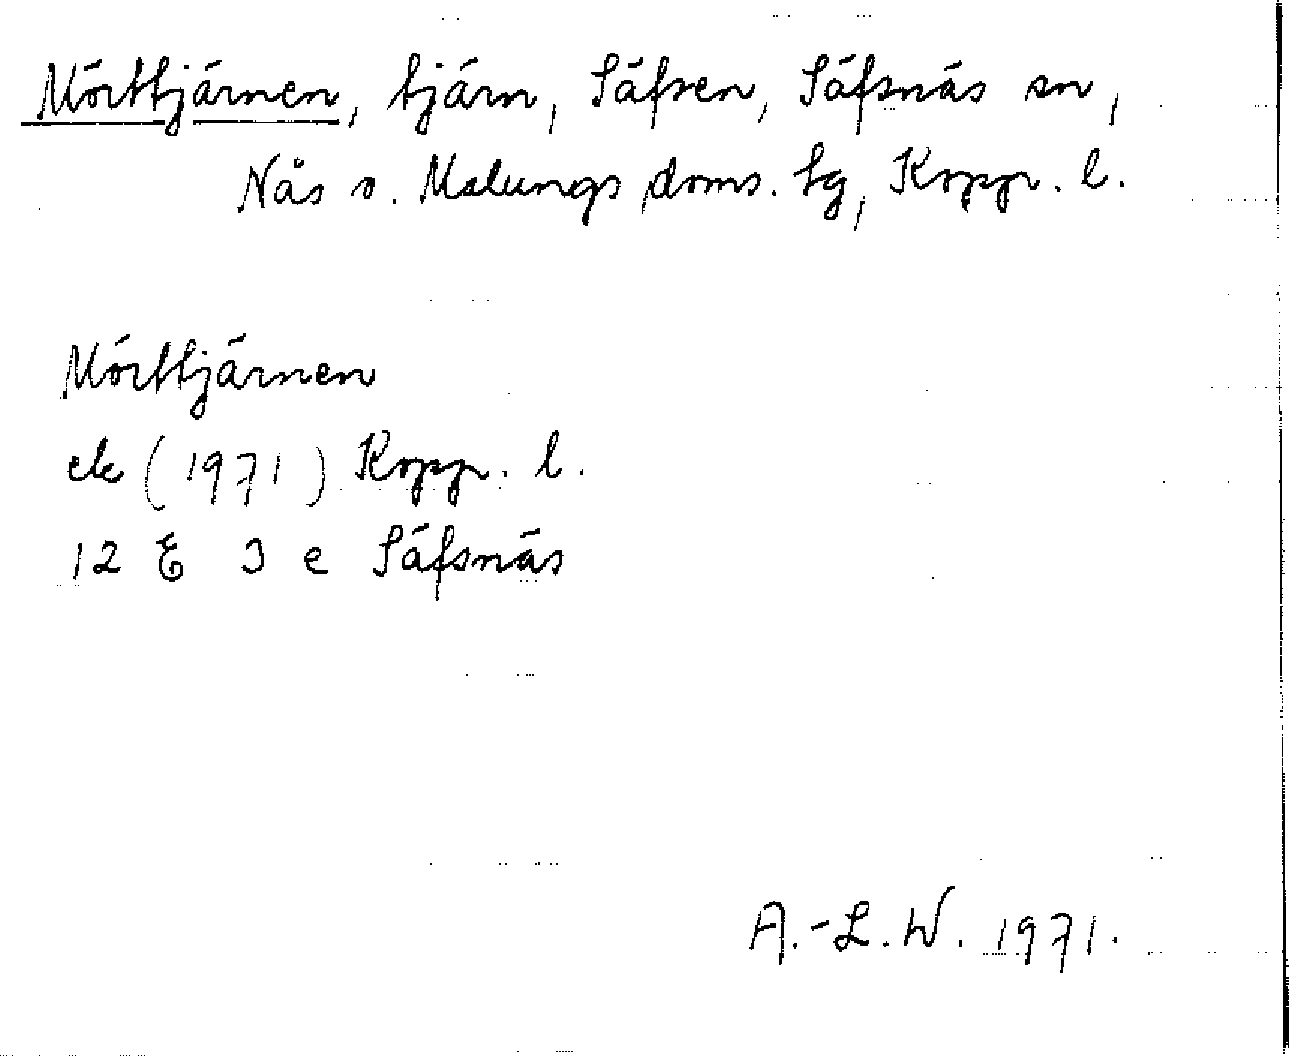 Mörttjärnen, tjärn, Säfsen, Säfsnäs sn,
Nås o. Malungs doms. tg, Kopp. l.
Mörttjärnen
ek (1971) Kopp. l.
12 E 3 e Säfsnäs
A.-L.W. 1971.